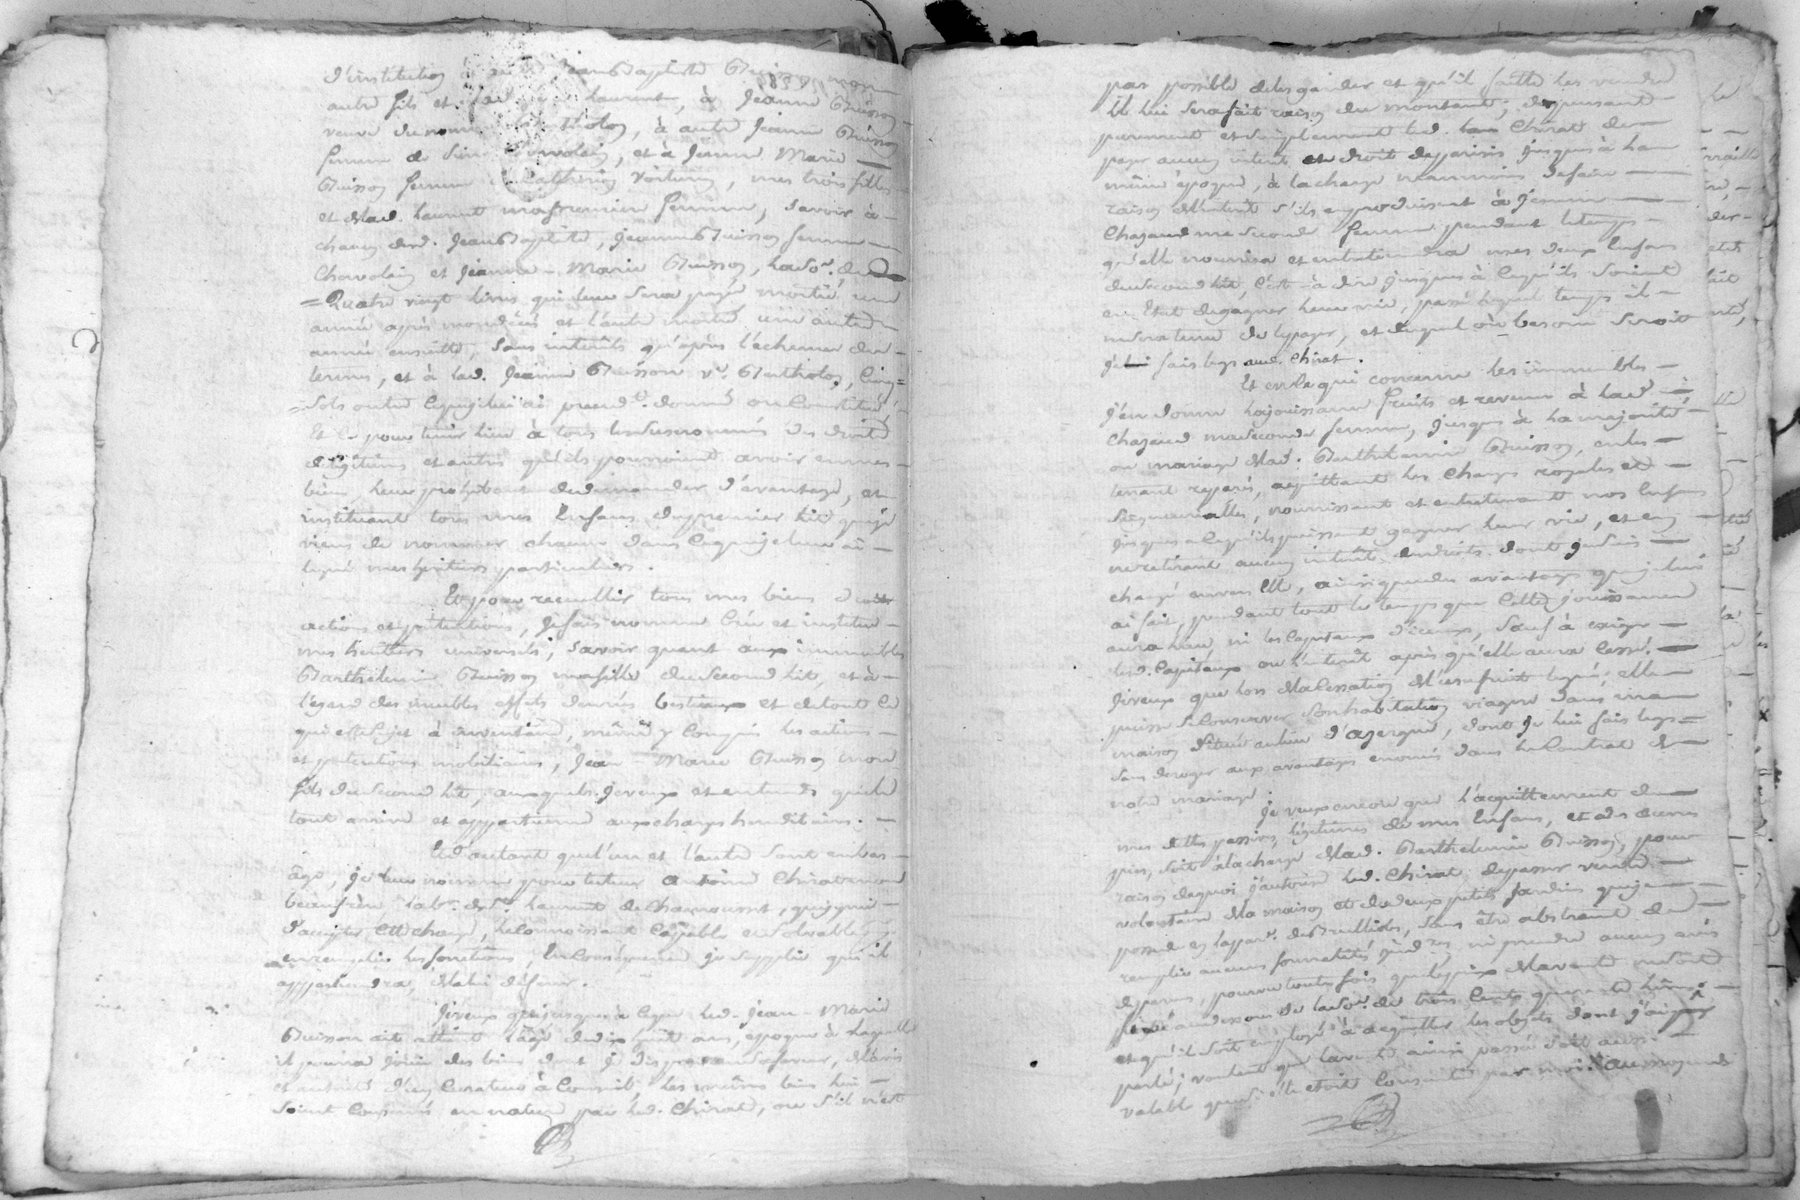 d'institution à Jean Baptiste Buisson mon
autre fils et de Laurent, à Jeanne Buisson
veuve de Bertholon, à autre Jeanne Buisson
femme de Chavolin, et à Jeanne Marie
Buisson femme de voiturier, mes trois filles
et de lad. Laurent ma première femme, savoir à
chacun desd. Jean Baptiste, Jeanne Buisson femme
Chavolin et Jeanne-Marie Buisson, la so.e de
Quatre vingt livres qui leur sera payé moitié une
année après mon décès et l'autre moitié une autre
année ensuitte, sans intérêts qu'après l'échéance des
termes, et à lad. Jeanne Buisson v.e Bertholon, Cinq
Sols outre ce que je lui ai donné ou Constitué
Et ce pour tenir lieu à tous les susnommés des droits
de légitime et autres qu'ils pourroient avoir en mes
biens, leur prohibant de demander d'avantage, et
instituant tous mes Enfans du premier lit que je
viens de nommer chacun dans ce que je leur ai
légué mes héritiers particuliers.
Et pour recueillir tous mes biens droits
actions et prétentions, je fais nomme Crée et institue
mes héritiers universels, savoir quant aux immeubles
Barthélemie Buisson ma fille du second lit, et à
l'égard des meubles effets denrés bestiaux et de tout ce
qui est sujet à inventaire, même y Compris les actions
et prétentions mobiliaires, Jean-Marie Buisson mon
fils du second lit, auxquels je veux et entends que le
tout arrive et appartienne aux charges héréditaires.
Et d'autant que l'un et l'autre sont en bas
âge, je leur nomme pour tuteur antoine Chirat mon
beaufrère lab.r de S.t Laurent de Chamousset, que je prie
d'accepter cette charge, le connoissant Capable et solvable
en remplir les fonctions, En Conséquence je supplie qu'il
appartiendra, de lui déferer.
Je veux que jusques à ce que led. Jean-Marie
Buisson ait atteint l'âge de dix huit ans, époque à laquelle
il pourra jouir des biens dont je dispose en sa faveur, de l'avis
et autorité d'un Curateur à Conseil les mêmes biens lui
soient Conservés en nature par led. Chirat, ou s'il n'est
pas possible de les garder et qu'il faille les vendre
il lui sera fait raison du montant, dispensant
purement et simplement led. Chirat de
payer aucun intérêt et droit de parisis jusques à la
même époque, à la charge neanmoins de faire
raison de l'intérêt s'ils en produisent à Jeanne
Chazaud ma seconde femme pendant le temps
qu'elle nourrira et entretiendra mes deux Enfans
du second lit, c'est-à-dire jusques à ce qu'ils soient
en Etat de gagner leur vie, passé lequel temps il
ne sera tenu de le payer, et duquel où besoin seroit
je fais legs aud. Chirat.
Et en ce qui concerne les immeubles
j'en donne la jouissance fruits et revenus à lad.
Chazaud ma seconde femme, jusques à la majorité
ou mariage de lad. Barthélemie Buisson, en les
tenant réparés, acquittant les Charges royales et
Seigneurialles, nourrissant et entretenant nos Enfans
jusques à ce qu'ils puissent gagner leur vie, et en
ne retirant aucun intérêt des droits dont je suis
chargé envers Elle, ainsi que des avantages que je lui
ai fait, pendant tout le temps que Cette jouissance
aura lieu, ni les Capitaux d'iceux, sauf à exiger
lesd. Capitaux ou l'intérêt après qu'elle aura Cessé.
Je veux que lors de la Cessation de l'usufruit legué, elle
puisse se Conserver son habitation viagere dans ma
maison située au lieu d'Azergue, dont je lui fais legs
sans deroger aux avantages enoncés dans le Contrat de
notre mariage.
Je veux encore que l'acquittement de
mes dettes passives, légitimes de mes Enfans, et des œuvres
pies, soit à la charge de lad. Barthelemie Buisson, pour
raison de quoi j'autorise led. Chirat de passer vente
volontaire de la maison et de deux petits jardins que je
possede en la parr. des sans être abstraint de
remplir aucunes formalités ni prendre aucun avis
de parens, pourvu toutes fois que le prix de la vente ne soit
fixé au dessous de la so.e de trois Cents quarante livres
et qu'il soit employé à acquitter les objets dont j'ai
parlé; voulant que la vente ainsi passée soit aussi
valable que si elle étoit Consentie par moi: au moyen de